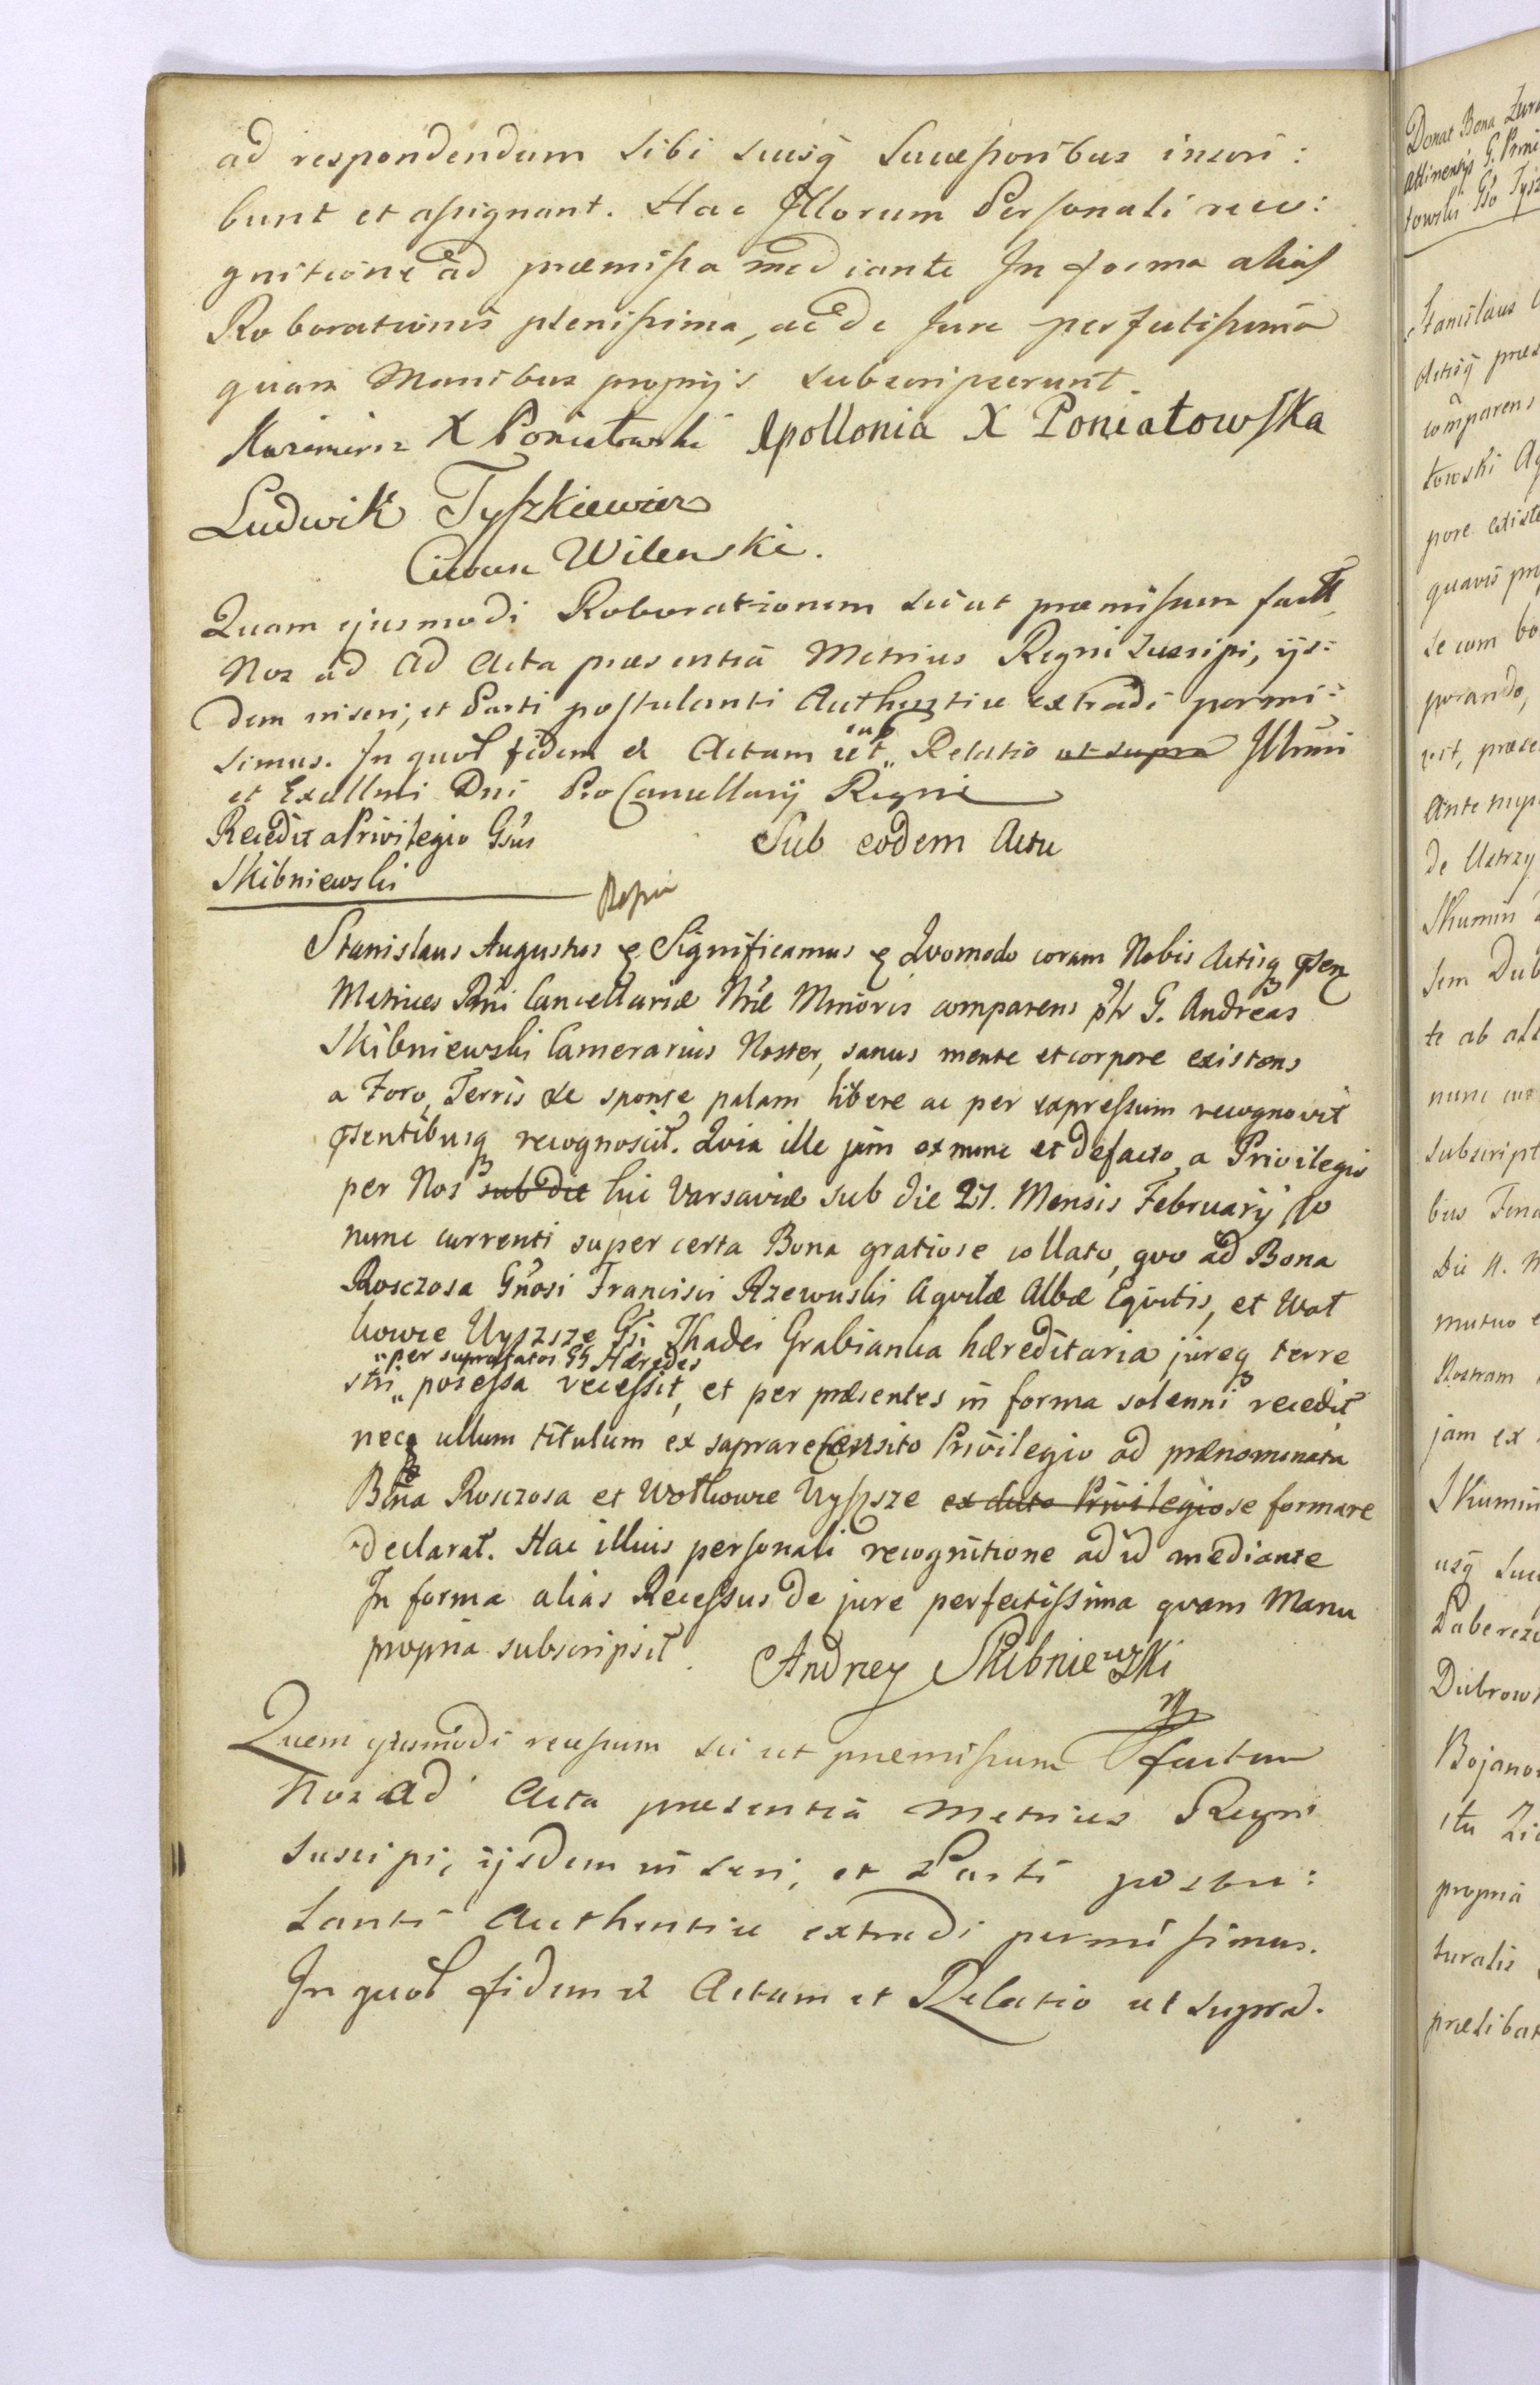 ad respondendum sibi suisq̃ Successoribus inscri:
bunt et assignant. Hac Illorum Personali reco:
gnitione ad præmissa mediante In forma alias
Roborationis plenissima, ac de Jure perfectissima
quam Manibus proprijs subscripserunt.
Kazimierz X Poniatowski Apollonia X Poniatowska
Ludwik Tyszkiewicz
Wilenski.
Quam ejusmodi Roborationem sicut præmissum
Nos ad ad Acta præsentia Metrices Regni suscipi, ijs:
dem inseri, et Parti postulanti Authentice extradi permi:
simus. In quor̃ fidem et Actum ut sub Relatio ut supra Illũmi
et Excellmi Dni Pro Cancellarij Regni
Recedit a Privilegio Gsus
Skibniewski
Sub eodem Actu
Stanislaus Augustus & Significamus & Quomodo coram Nobis Actisq
Metrices Rñi Cancellariæ Nræ Minoris comparens G. Andreas
Skibniewski Camerarius Noster, sanus mente et corpore existens
a Foro, Terris &c sponte palam libere ac per expressum recognovit
psentibusq recognoscit. Quia ille jam ex nunc et defacto, a Privilegio
per Nos sub die hic Varsaviæ sub die 21. Mensis Februarij
nunc currenti super certa Bona gratiose collato, quo ad Bona
Rosczosa Gñosi Francisci Rzewuski Aquilæ Albæ Equitis, et Woł
kowce Wyszsze Gsi Thadei Grabianka hæreditaria jureq terre
stri „per suprafatos GG Hæredes„ possessa recessit, et per præsentes in forma solenni recedit
necq ullum titulum ex suprarecensito Privilegio ad prænominata
Bona Rosczosa et Wołkowce Wyssze ex dicto Privilegio se formare
declarat. Hac illius personali recognitione ad id mediante
In forma alias Recessus de jure perfectissima quam Manu
propria subscripsit. Andrzey Skibniewski
Quem ejusmodi recessum sicut præmissum factum
Nos ad Acta præsentia Metrices Regni
suscipi, ijsdem inseri, et Parti postu:
lanti Authentice extradi permissimus.
In quor̃ fidem et Actum et Relatio ut supra.
Donat Bona
attinentijs G. Prin
towski Gso Tysz
Stanislaus
Actisq præs
comparens
towski
pore existe
quavis
se cum bo
porando,
est, præse
Ante
de Ustrzy
Skumin
sem Dub
te ab
nunc
subscript
bus
Die
mutuo e
Nostram
jam ex
Skumin
usq Suc
Dubrow
Bojano
propria
turalis
prælibat